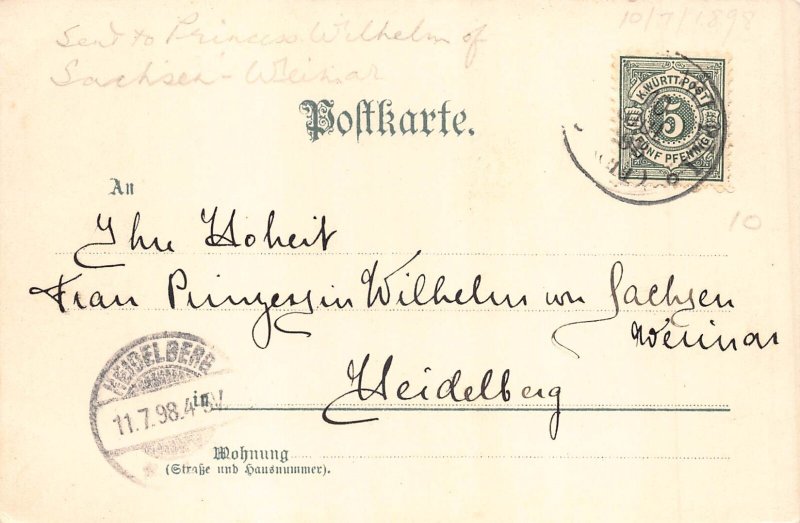 Sent to Princess Wilhelm of
Sachsen-Weimar
10/7/1898
K. WÜRTT. POST
5
FÜNF PFENNIG
Postkarte.
10
An
Ihre Hoheit
Frau Prinzessin Wilhelm von Sachsen
Weimar
HEIDELBERG
11.7.98.4
in
Heidelberg
Wohnung
(Straße und Hausnummer).